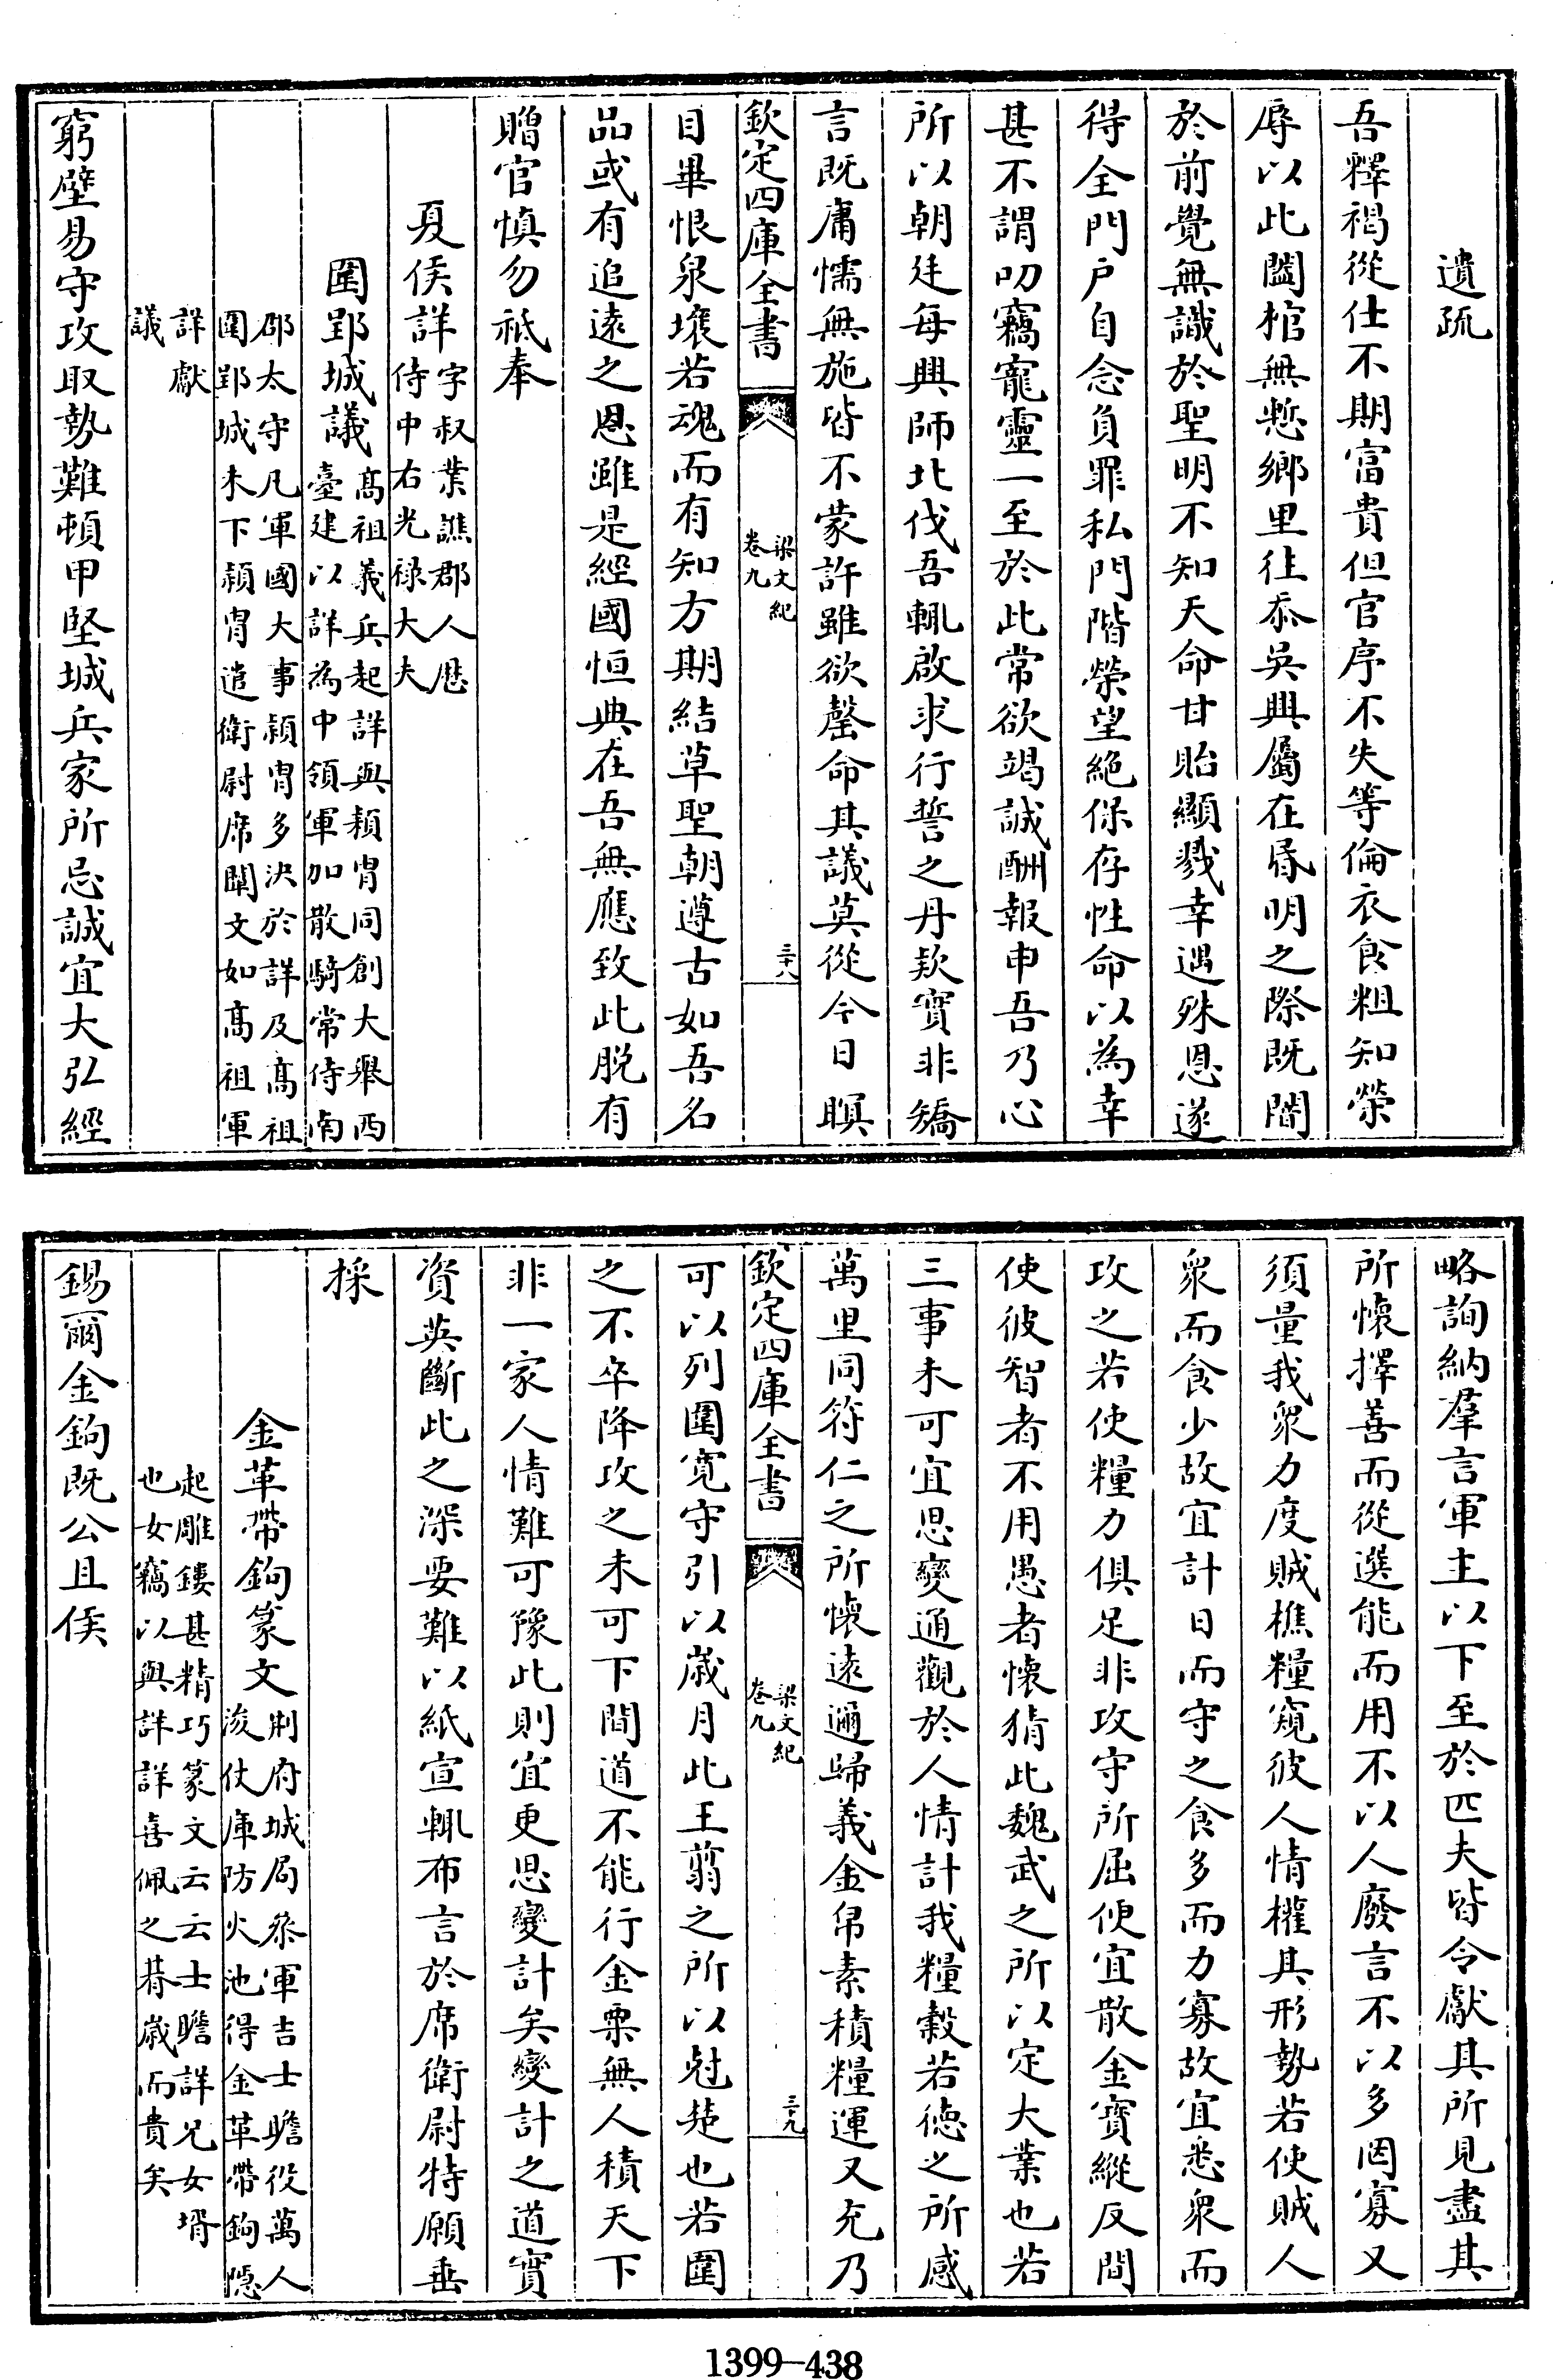 遺疏
吾釋褐從仕不期富貴但官序不失等倫衣食粗知榮
辱以此闔棺無慙鄉里往忝吳興屬在昬明之際既闇
於前覺無識於聖明不知天命甘貽顯戮幸遇殊恩遂
得全門户自念負罪私門階榮望絕保存性命以為幸
甚不謂叨竊寵靈一至於此常欲竭誠酬報申吾乃心
所以朝廷每興師北伐吾輒啟求行誓之丹欵實非矯
言既庸懦無施皆不蒙許雖欲罄命其議莫從今日瞑
欽定四庫全書
梁文紀
卷九
三十八
目畢恨泉壤若魂而有知方期結草聖朝遵古如吾名
品或有追遠之恩雖是經國恒典在吾無應致此脱有
贈官慎勿祗奉
夏侯詳字叔業譙郡人歴
侍中右光祿大夫
圍郢城議髙祖義兵起詳與穎胄同創大舉西
臺建以詳為中領軍加散騎常侍南
郡太守凡軍國大事穎胄多決於詳及髙祖
圍郢城未下穎胄遣衛尉席闡文如髙祖軍
詳獻
議
窮壁易守攻取勢難頓甲堅城兵家所忌誠宜大弘經
略詢納羣言軍主以下至於匹夫皆令獻其所見盡其
所懷擇善而從選能而用不以人廢言不以多罔寡又
須量我衆力度賊樵糧窺彼人情權其形勢若使賊人
衆而食少故宜計日而守之食多而力寡故宜悉衆而
攻之若使糧力俱足非攻守所屈便宜散金寶縱反間
使彼智者不用愚者懷猜此魏武之所以定大業也若
三事未可宜思變通觀於人情計我糧穀若德之所感
萬里同符仁之所懷遠邇歸義金帛素積糧運又充乃
欽定四庫全書
梁文紀
卷九
三十九
可以列圍寛守引以嵗月此王翦之所以尅楚也若圍
之不卒降攻之未可下間道不能行金粟無人積天下
非一家人情難可豫此則宜更思變計矣變計之道實
資英斷此之深要難以紙宣輒布言於席衛尉特願垂
採
金革帶鉤篆文荆府城局參軍吉士瞻役萬人
浚仗庫防火池得金革帶鉤隱
起雕鏤甚精巧篆文云云士瞻詳兄女壻
也女竊以與詳詳喜佩之朞嵗而貴矣
錫爾金鉤既公且侯
1399-438